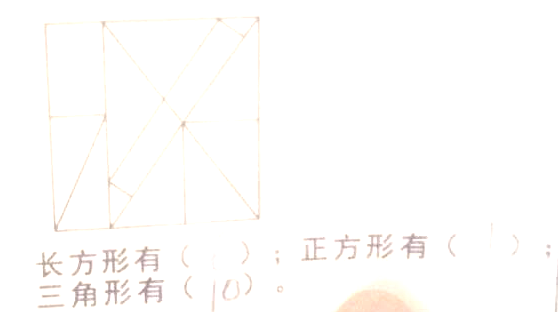 长方形有（ ）；正方形有（ ）；
三角形有（10）。